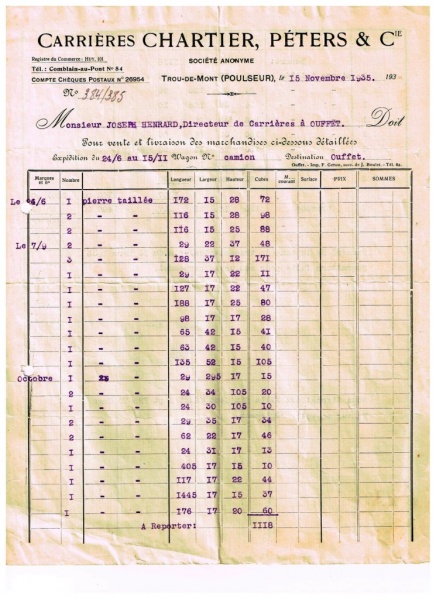 CARRIÈRES CHARTIER, PÉTERS & CIE
SOCIÉTÉ ANONYME
Registre du Commerce: HUY, 101
Tél.: Comblain-au-Pont Nº 84
COMPTE CHÈQUES POSTAUX Nº 26954
TROU-DE-MONT (POULSEUR), le 15 Novembre 1935. 193
Nº 384/385
Monsieur JOSEPH HENRARD, Directeur de Carrières à OUFFET. Doit
Pour vente et livraison des marchandises ci-dessous détaillées
Expédition du 24/6 au 15/II Wagon Nº camion Destination Ouffet.
Marques et nº Nombre Longueur Largeur Hauteur Cubes M. courant Surface PRIX SOMMES
Le 24/6 I pierre taillée 172 15 28 72
2 - - 116 15 28 98
2 - - 116 15 25 88
Le 7/9 2 - - 29 22 37 48
3 - - 128 37 12 171
I - - 29 17 22 11
I - - 127 17 22 47
I - - 188 17 25 80
I - - 98 17 17 28
I - - 65 42 15 41
I - - 63 42 15 40
I - - 135 52 15 105
Octobre I - 29 295 17 15
2 - - 24 34 105 20
I - - 24 30 105 10
2 - - 29 35 17 34
2 - - 62 22 17 46
I - - 24 31 17 13
I - - 405 17 15 10
I - - 117 17 22 44
I - - 1445 17 15 37
I - - 176 17 20 60
A Reporter: III8